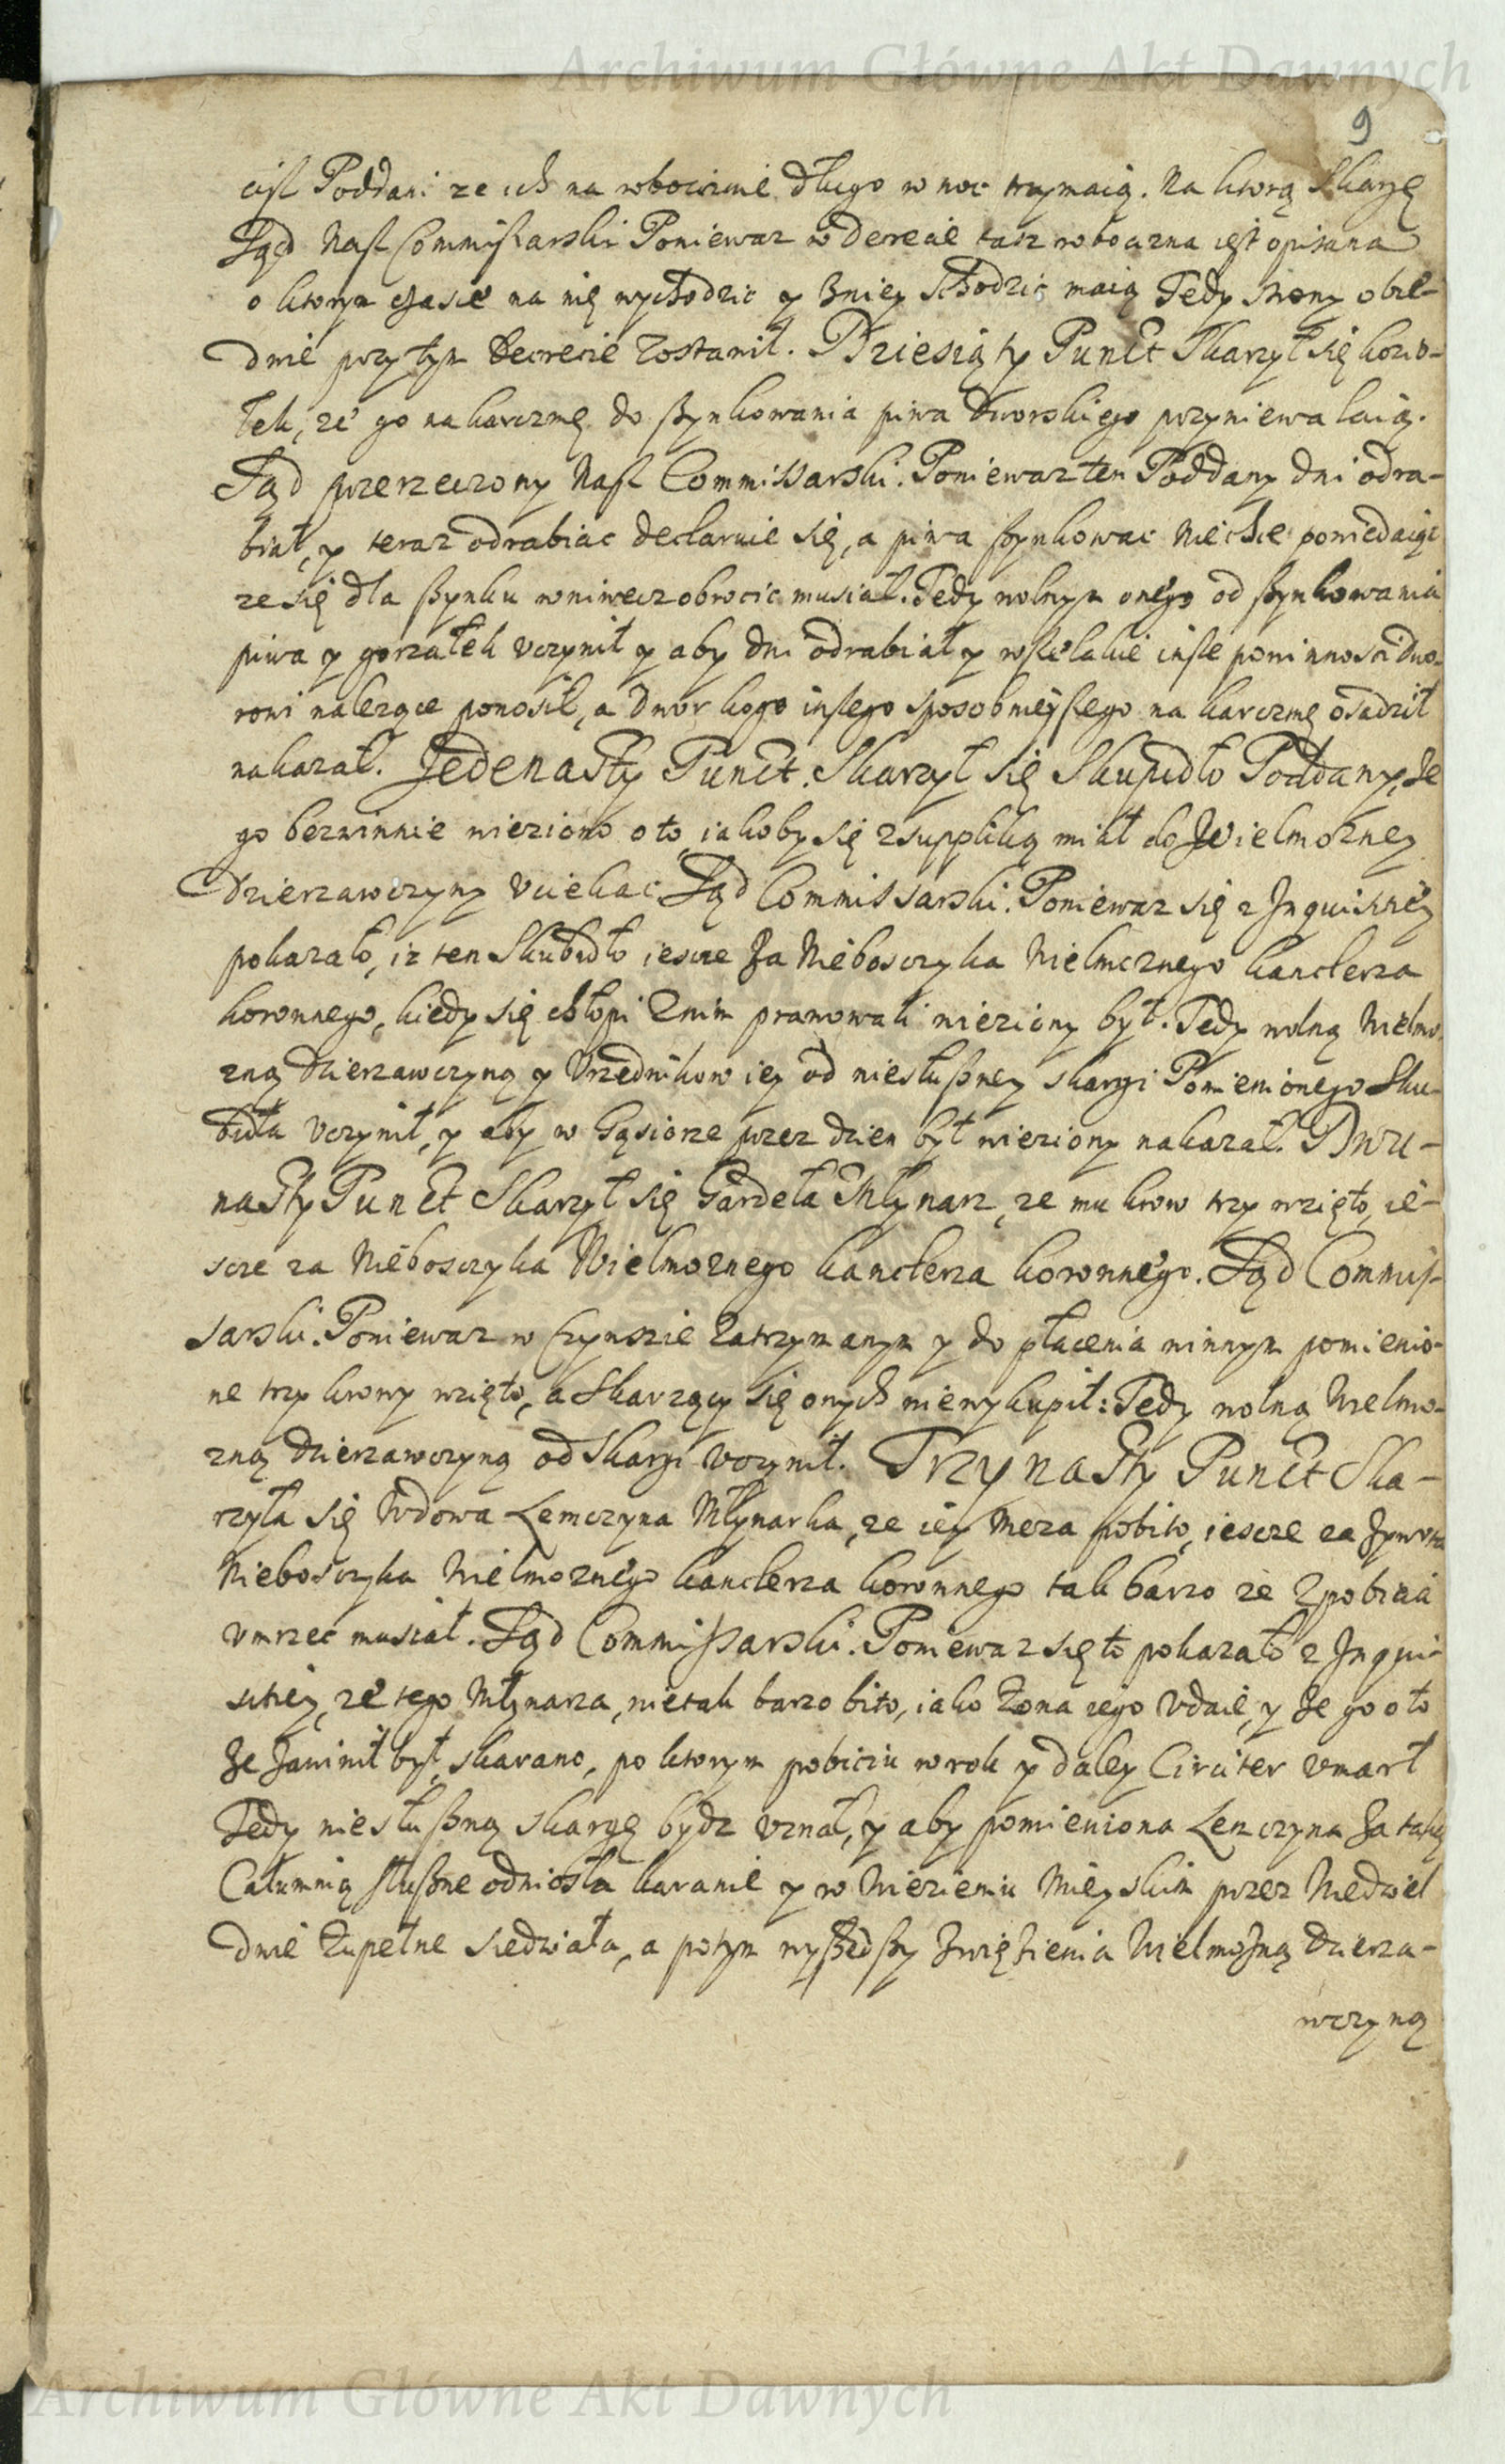 Archiwum Główne Akt Dawnych
9
ciß Poddani ze ich na robociznie długo w noc trzymaią. Na ktorą Skargę
Sąd Nasz Commissarski Poniewaz w Decrecie tasz robocizna iest opisana
o ktorym czasie na nię wychodzic y zniey schodzic maią Tedy strony obie-
dwie przytym Decrecie zostawił. Dziesiąty Punct Skarzył się kozio-
łek, ze go na karczmę do szynkowania piwa Dworskiego przyniewalaią.
Sąd przerzeczony Nasz Commissarski. Poniewaz ten Poddany dni odra-
biał, y teraz odrabiac declaruie się, a piwa szynkowac niechce powiedaiąc
ze się dla szynku wniwecz obrocic musiał. Tedy wolnym onego od szynkowania
piwa y gorzałek vczynił y aby dni odrabiał y wszelakie insze powinnosci dwo-
rowi nalezące ponosił, a Dwor kogo inszego sposobnieyszego na karczmę osadził
nakazał. Jedenasty Punct. Skarzył się Skupidło Poddany, ze
go bezwinnie więziono o to, iakoby się zsuppliką miał do Wielmozney
Dzierzawczyny vciekac. Sąd Commissarski. Poniewaz się z Inquisitiey
pokazało, iz ten Skubidło iescze za Nieboszczyka Wielmoznego kanclerza
koronnego, kiedy się chłopi znim prawowali więziony był. Tedy wolną Wielmo-
zną Dzierzawczyną y Vrzednikow iey od niesłuszney skargi Pomienionego Sku-
bidła vczynił, y aby w Gąsiorze przez dzien był więziony nakazał. Dwu-
nasty Punct Skarzył się Gardeła Młynarz, ze mu krow trzy wzięto, ie-
scze za Nieboszczyka Wielmoznego kanclerza koronnego. Sąd Commis-
sarski. Poniewaz w Czynszie zatrzymanym y do płacenia winnym pomienio-
ne trzy krowy wzięto, a Skarzący się onych niewykupił: Tedy wolną Wielmo-
zną Dzierzawczyną od Skargi vczynił. Trzynasty Punct Ska-
rzyła się Wdowa Lemczyna Młynarka, ze iey Męza pobito, iescze za zywota
Nieboszczyka Wielmoznego kanclerza koronnego tak barzo ze zpobicia
vmrzec musiał. Sąd Commissarski. Poniewaz się to pokazało z Inqui-
sitiey, ze tego Młynarza, nietak barzo bito, iako zona iego vdaie, y ze go o to
ze zawinił był, skarano, po ktorym pobiciu w rok y daley Circiter vmarł
Tedy niesłuszną skargę bydz vznał, y aby pomieniona Lenczyna za taką
Calumnią słuszne odniosła karanie y w Więzieniu Mieyskim przez Niedziel
dwie zupełne siedziała, a potym wyszedszy zwięzienia Wielmozną Dzierza-
wczyną
Archiwum Główne Akt Dawnych